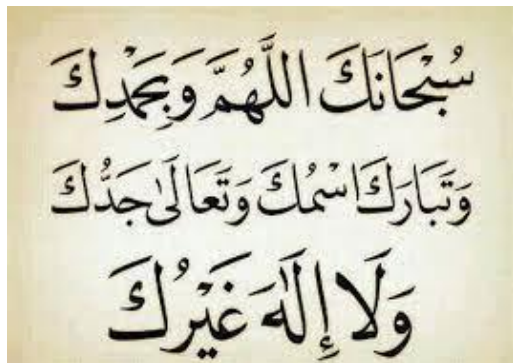 سُبْحَانَكَ اللَّهُمَّ وَبِحَمْدِكَ
وَتَبَارَكَ اسْمُكَ وَتَعَالَىٰ جَدُّكَ
وَلَا إِلَٰهَ غَيْرُكَ